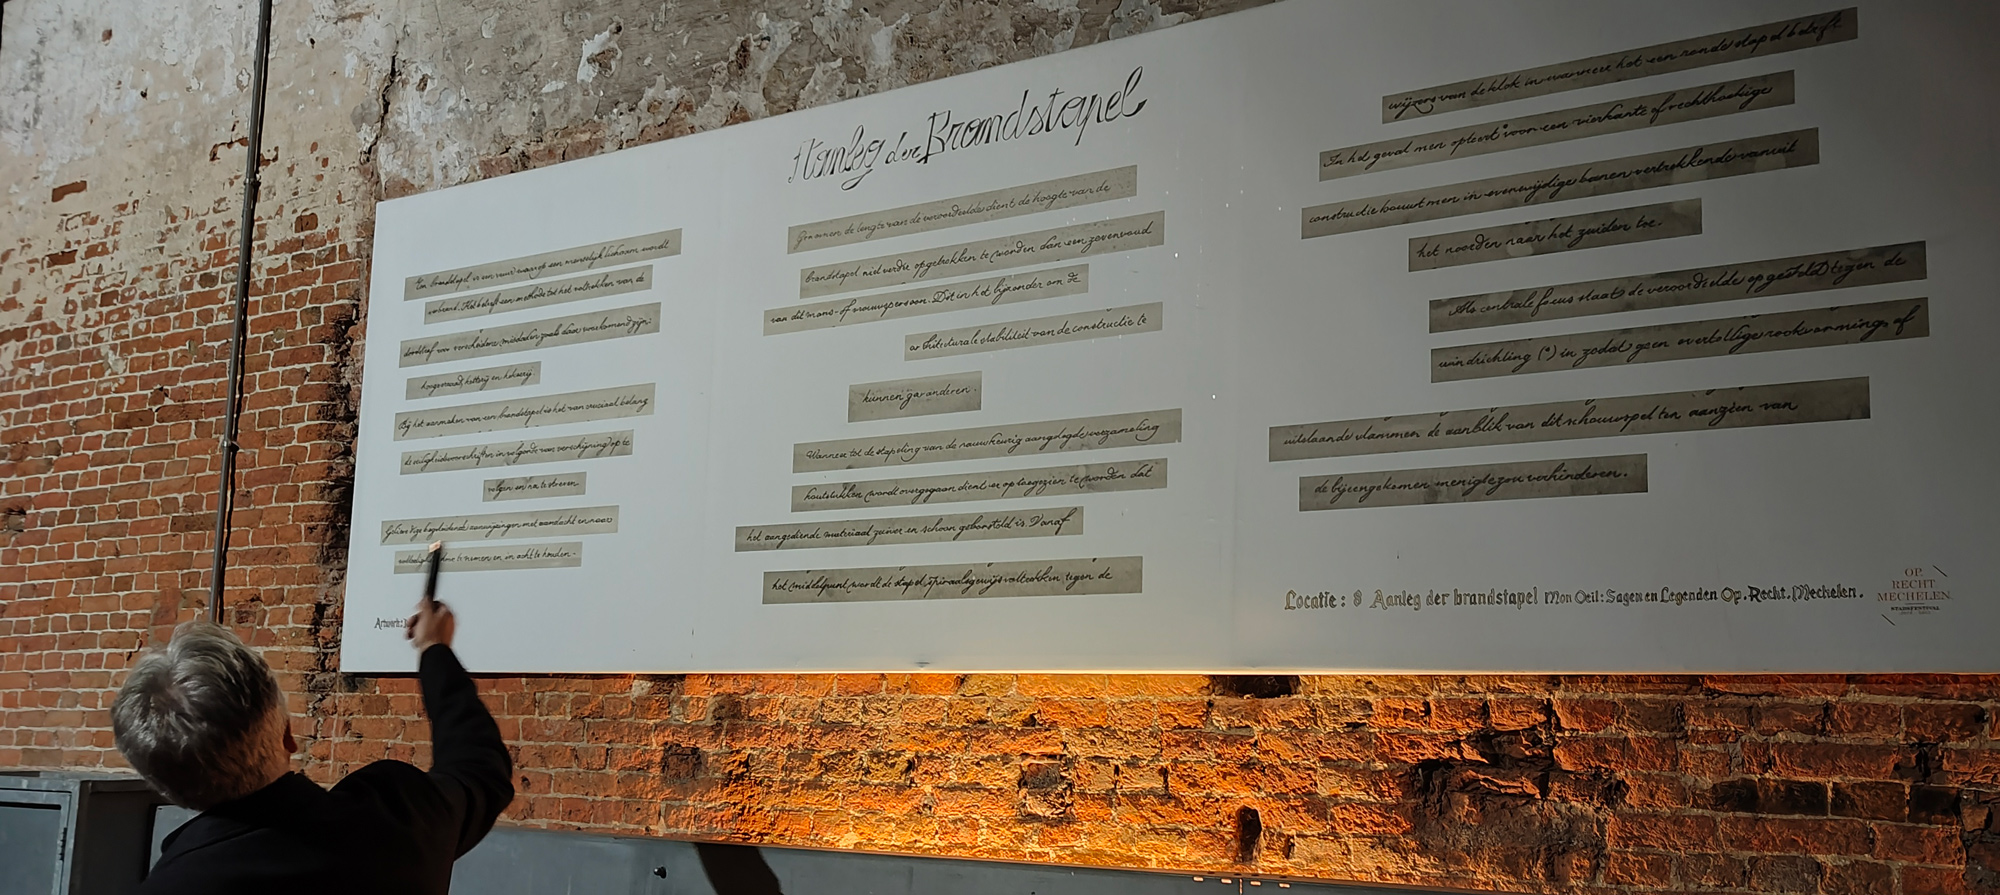 Aanleg der Brandstapel
Een brandstapel is een vuur waarop een menselijk lichaam wordt
verbrand. Het betreft een methode tot het voltrekken van de
doodstraf voor verscheidene misdaden zoals daar voorkomend zijn:
hoogverraad, ketterij en hekserij.
Bij het aanmaken van een brandstapel is het van cruciaal belang
de veiligheidsvoorschriften in volgorde van verschijning op te
volgen en na te streven.
Gelieve deze begeleidende aanwijzingen met aandacht en naar
te nemen en in acht te houden.
Artwork:
Gramenen de lengte van de veroordeelde dient de hoogte van de
brandstapel niet verder opgetrokken te worden dan een zevenvoud
van dit mans- of vrouwspersoon. Dit in het bijzonder om de
architecturale stabiliteit van de constructie te
kunnen garanderen.
Wanneer tot de stapeling van de nauwkeurig aangelegde verzameling
houtstukken wordt overgegaan dient er op toegezien te worden dat
het aangediende materiaal zuiver en schoon geborsteld is. Vanaf
het middelpunt wordt de stapel spiraalsgewijs voltrokken tegen de
wijzers van de klok in wanneer het een ronde stapel betreft.
In het geval men opteert voor een vierkante of rechthoekige
constructie bouwt men in evenwijdige banen vertrekkende vanuit
het noorden naar het zuiden toe.
Als centrale focus staat de veroordeelde opgesteld tegen de
windrichting (*) in zodat geen overtollige rookvormings of
uitslaande vlammen de aanblik van dit schouwspel ten aanzien van
de bijeengekomen menigte zou verhinderen.
Locatie: 8 Aanleg der brandstapel Mon Oeil: Sagen en Legenden Op. Recht. Mechelen.
OP.
RECHT.
MECHELEN.
STADSFESTIVAL